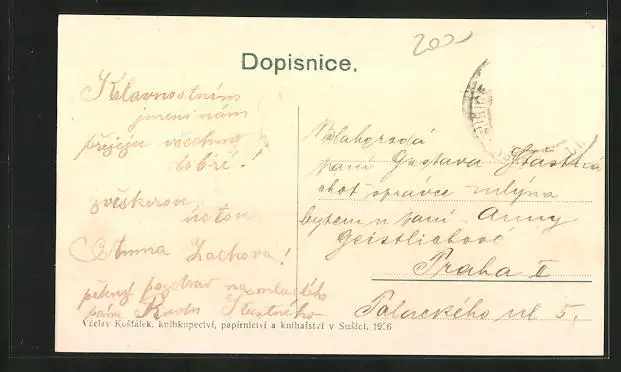 200
Dopisnice.
K slavnostním
jmeninám
přejeju všechno
dobré!
veškerou
úctou
Anna Zachova!
pozdrav na mladého
pána
Blahorodá
paní Gustava Šťastná
chot správce mlýna
bytem u paní Anny
Geistlichové
Praha II
Palackého ul 5.
Václav Košťálek, knihkupectví, papírnictví a knihařství v Sušici, 1906